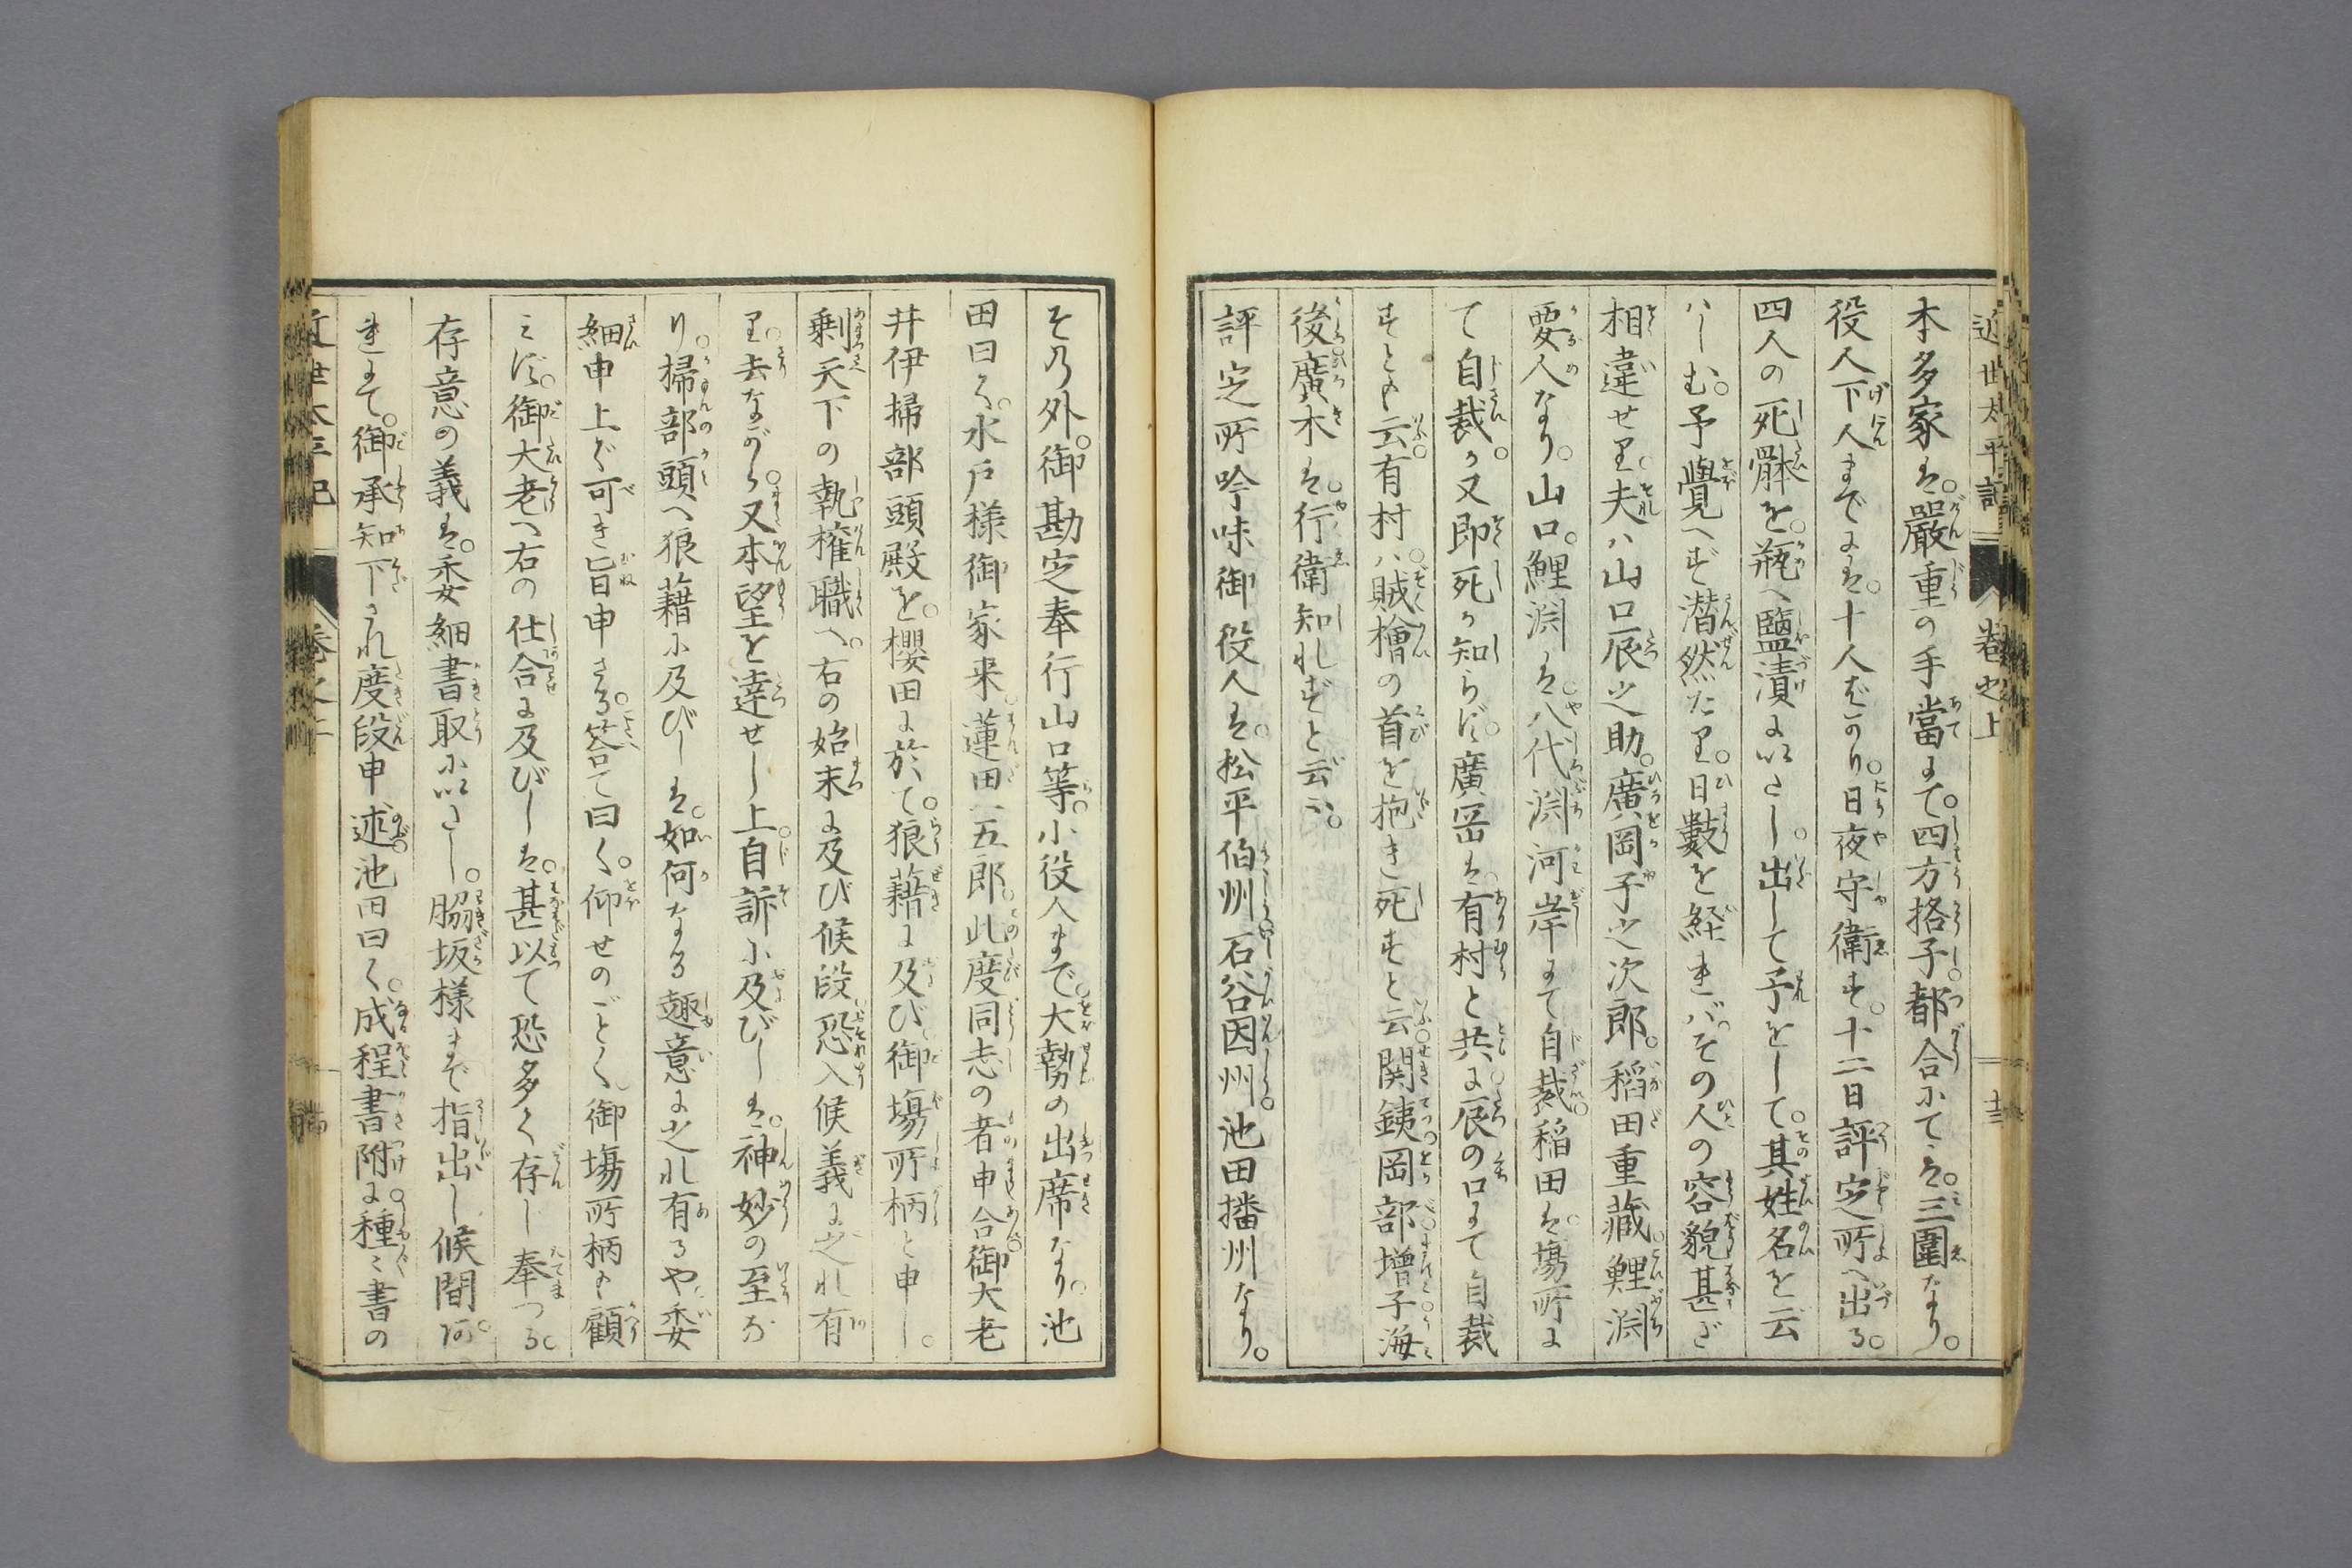 近世太平記 卷之上 十三
本多家は。嚴重の手當にて。四方格子。都合にては。三圍なり。
役人下人までには。十人ばかり。日夜守衛す。十二日評定所へ出る。
四人の死骵を。瓶へ鹽漬にいたし。出して予をして。其姓名を云
ハしむ。予覺へず潜然たり。日數を経れバ。その人の容貌甚ざ
相違せり。夫ハ山口辰之助。廣岡子之次郎。稻田重藏。鯉渕
要人なり。山口。鯉渕は。八代渕河岸にて自裁。稲田は。塲所に
て自裁。か又即死か知らず。廣岡は。有村と共に。辰の口にて自裁
すとも云。有村ハ。賊檜の首を抱き死すと云。関銕。岡部。増子。海
後。廣木は。行衛知れずと云ふ。
評定所吟味御役人は。松平伯州。石谷因州。池田播州なり。
その外。御勘定奉行山口等。小役人まで。大勢の出席なり。池
田曰く。水戸様御家来。蓮田一五郎。此度同志の者申合。御大老
井伊掃部頭殿を。櫻田に於て。狼藉に及び。御塲所柄と申し。
剰天下の執權職へ。右の始末に及び候段。恐入候義に之れ有
り。去ながら。又本望を達せし上。自訴に及びしは。神妙の至な
り。掃部頭へ狼藉に及びしは。如何なる趣意に之れ有るや。委
細申上ぐ可き旨申さる。答て曰く。仰せのごとく。御塲所柄も顧
ミず。御大老へ右の仕合に及びしは。甚以て恐多く存じ奉つる。
存意の義は。委細書取にいたし。脇坂様まで指出し候間。
まにて。御承知下され度段申述。池田曰く。成程書附に種々書の
近世太平記 卷之上